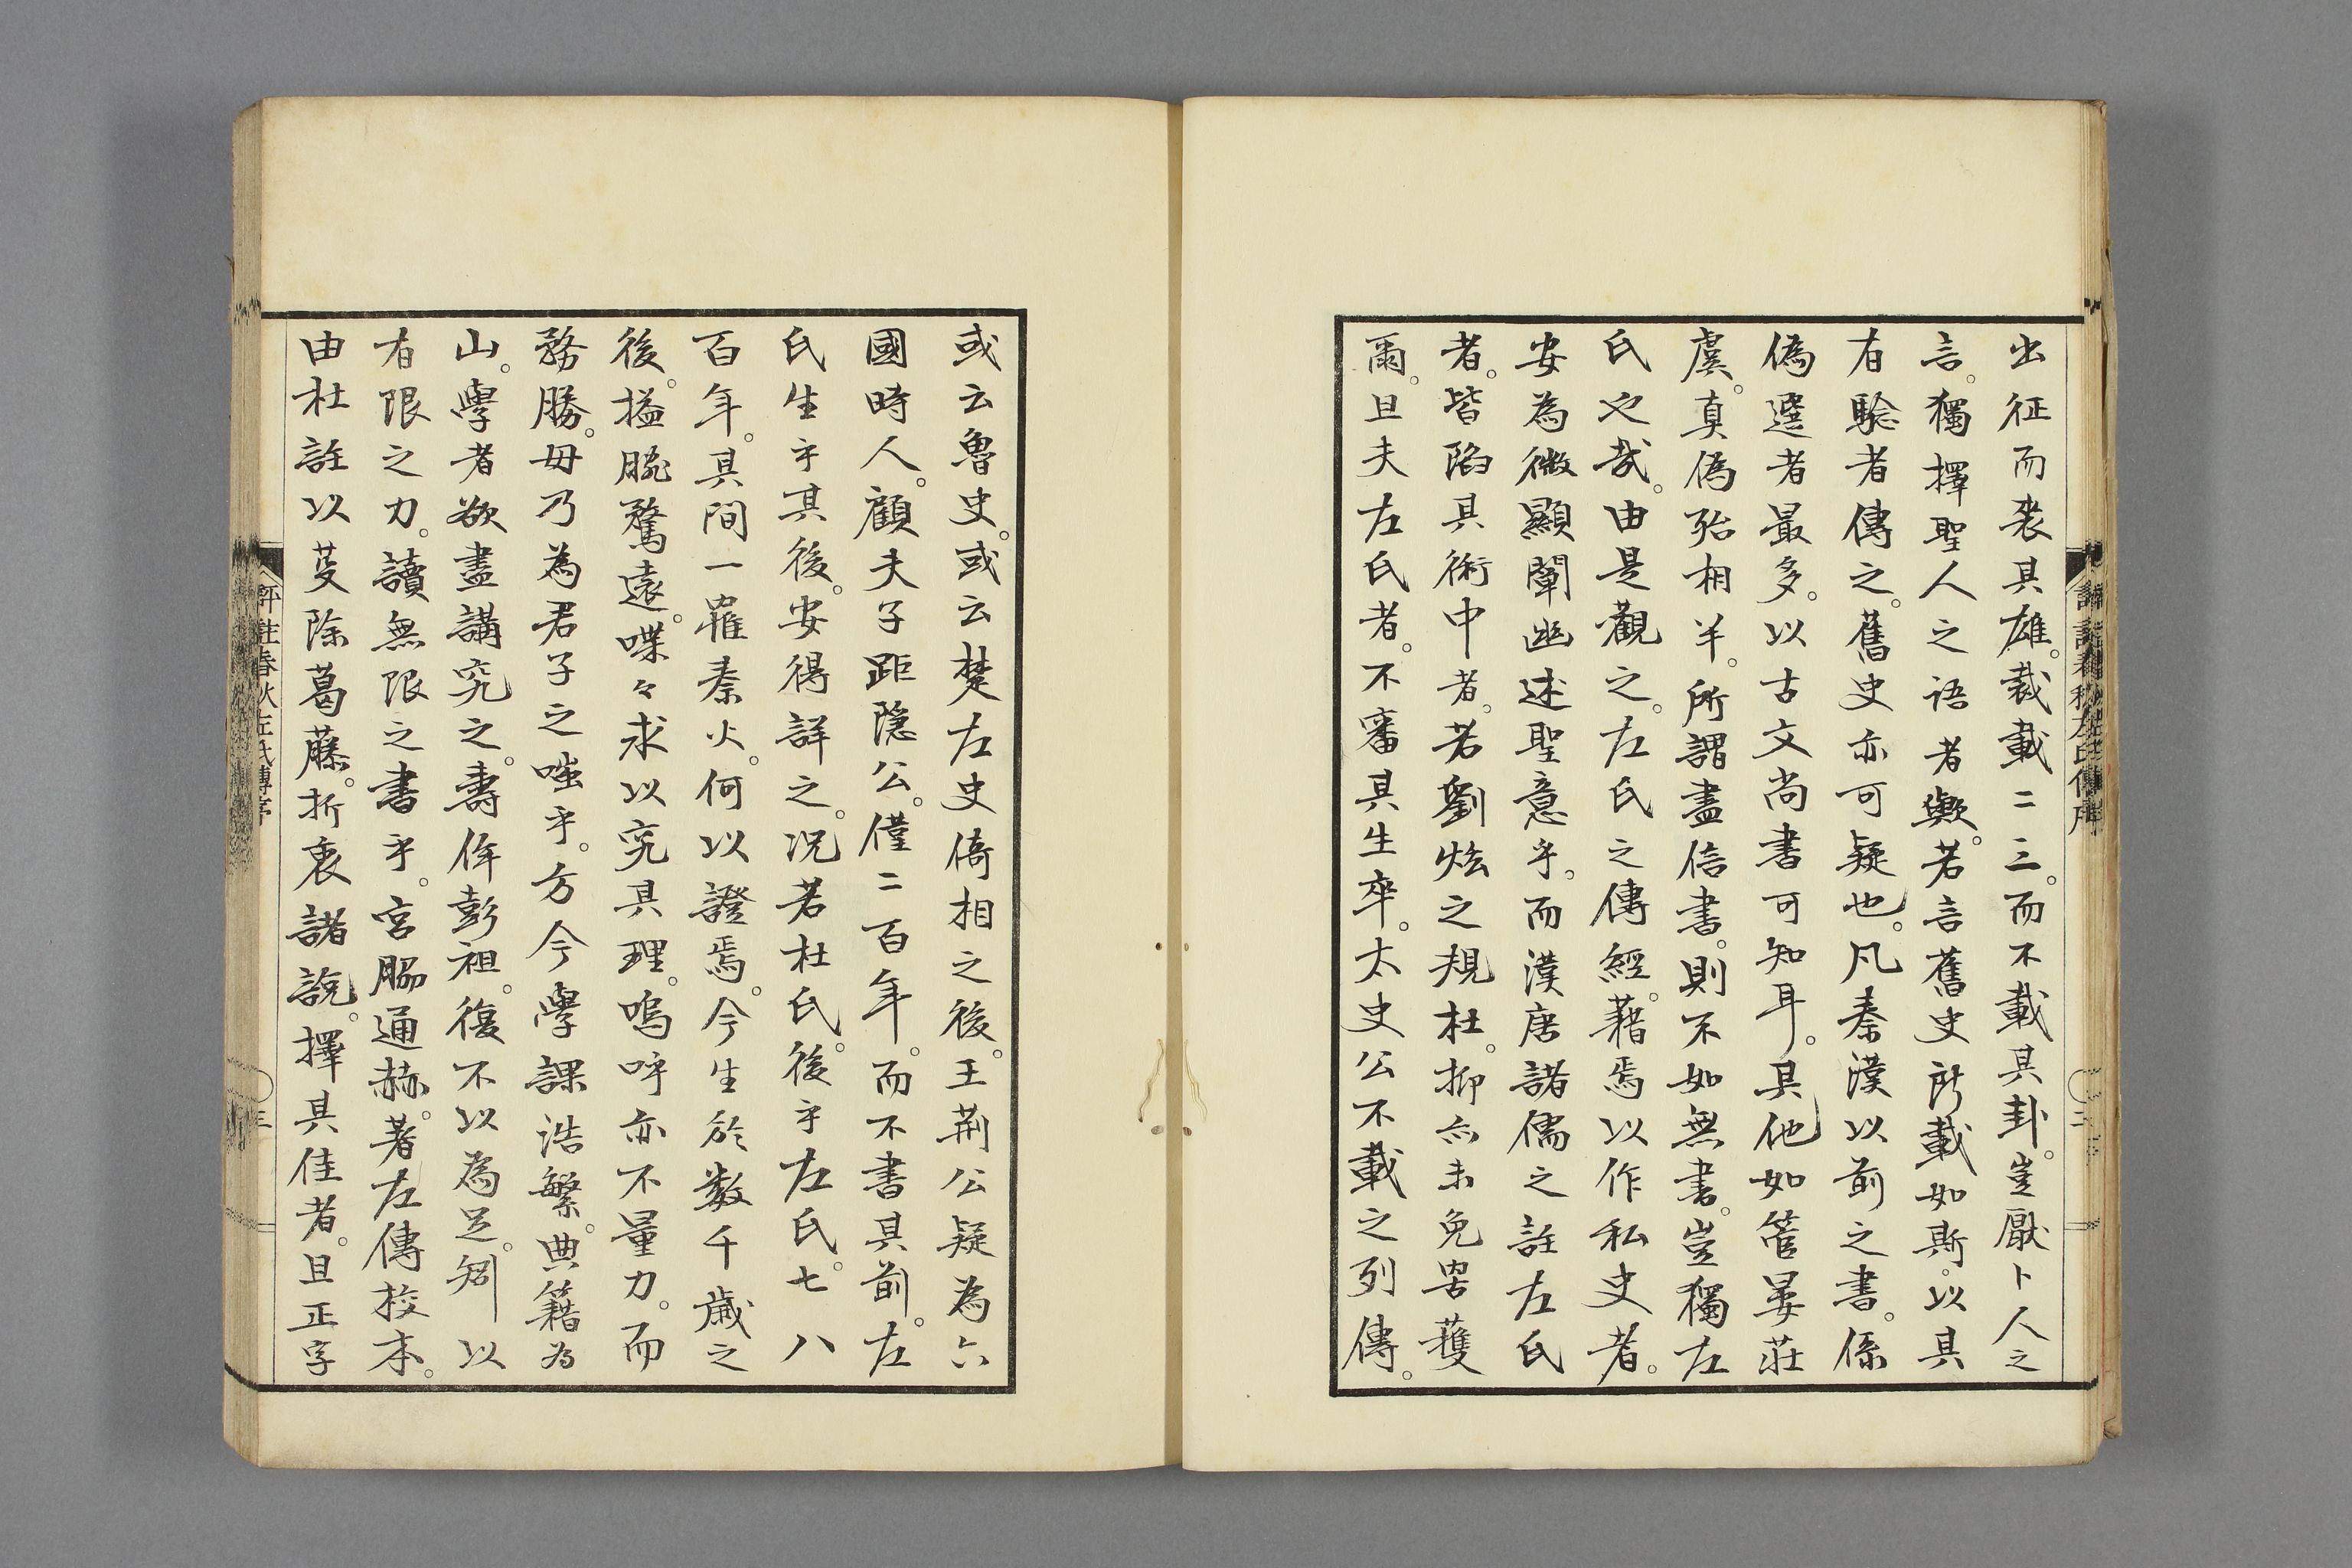 出征而喪其雄。裁載二三。而不載其卦。豈厭卜人之
言。獨擇聖人之語者歟。若言舊史所載如斯。以其
有驗者傳之。舊史亦可疑也。凡秦漢以前之書。係
偽選者最多。以古文尚書可知耳。其他如管晏莊
虞。真偽殆相半。所謂盡信書。則不如無書。豈獨左
氏也哉。由是觀之。左氏之傳經。藉焉以作私史者。
安為微顯闡幽述聖意乎。而漢唐諸儒之註左氏
者。皆陷其術中者。若劉炫之規杜。抑亦未免畧獲
爾。且夫左氏者。不審其生卒。太史公不載之列傳。
或云魯史。或云楚左史倚相之後。王荆公疑為六
國時人。顧夫子距隱公。僅二百年。而不書其前。左
氏生乎其後。安得詳之。況若杜氏。後乎左氏。七八
百年。其間一罹秦火。何以證焉。今生於數千歲之
後。搤腕騖遠。喋々求以究其理。嗚呼亦不量力。而
務勝。毋乃為君子之嗤乎。方今學課浩繁。典籍為
山。學者欲盡講究之。壽侔彭祖。復不以為足。矧以
有限之力。讀無限之書乎。宮脇通赫。著左傳校本。
由杜註以芟除葛藤。折衷諸説。擇其佳者。且正字
評註春秋左氏傳序
三